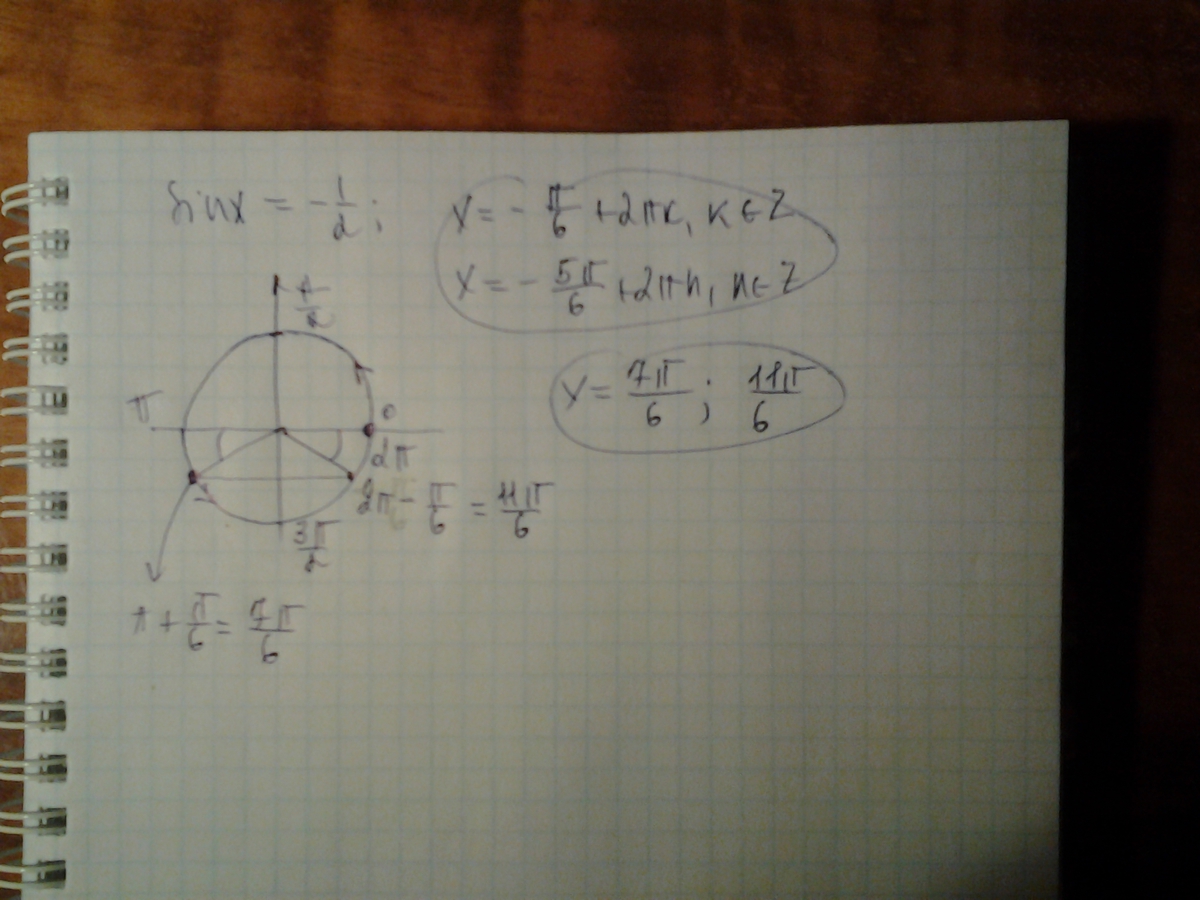 sinx = -1/2; x = - π/6 + 2πk, k ∈ Z
x = - 5π/6 + 2πn, n ∈ Z
π/2
x = 7π/6; 11π/6
π 0
2π
2π - π/6 = 11π/6
3π/2
π + π/6 = 7π/6